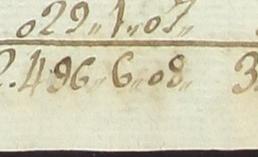 029,, 1,, 07,,
2.496,, 6,, 08,, 3